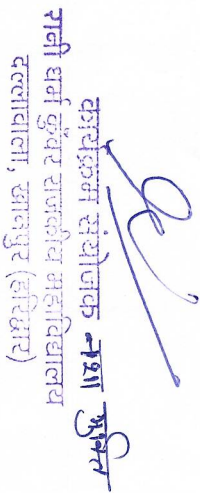 कार्यक्रम संयोजक - नशा मुक्ति
रानी धर्म कुंवर राजकीय महाविद्यालय
दल्लावाला, खानपुर (हरिद्वार)